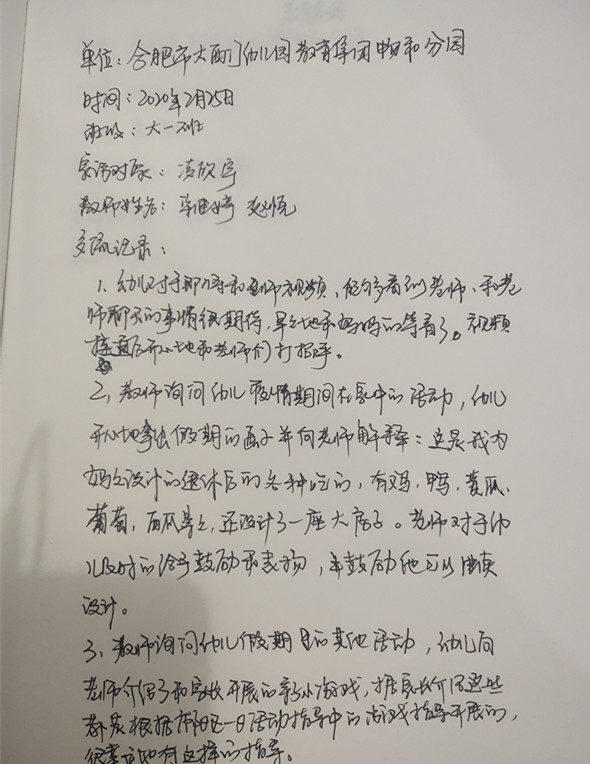 单位：合肥市大西门幼儿园教育集团中和分园
时间：2020年2月25日
班级：大一班
家访对象：凌欣宇
教师姓名： 婷 赵悦
交流记录：
1、幼儿对于即将和老师视频，能够看到老师、和老
师聊天的事情很期待，早早地和妈妈的等着了。视频
接通后开心地和老师们打招呼。
2、教师询问幼儿疫情期间在家中的活动，幼儿
开心地拿出假期的画子并向老师解释：这是我为
妈妈设计的退休后的各种吃的，有鸡、鸭、黄瓜、
葡萄、西瓜等等，还设计了一座大房子。老师对于幼
儿及时的给予鼓励和表扬，并鼓励他可以继续
设计。
3、教师询问幼儿假期里的其他活动，幼儿向
老师介绍了和家长开展的亲子小游戏，据家长介绍这些
都是根据 一日活动指导中的游戏指导开展的，
很 地有这样的指导。